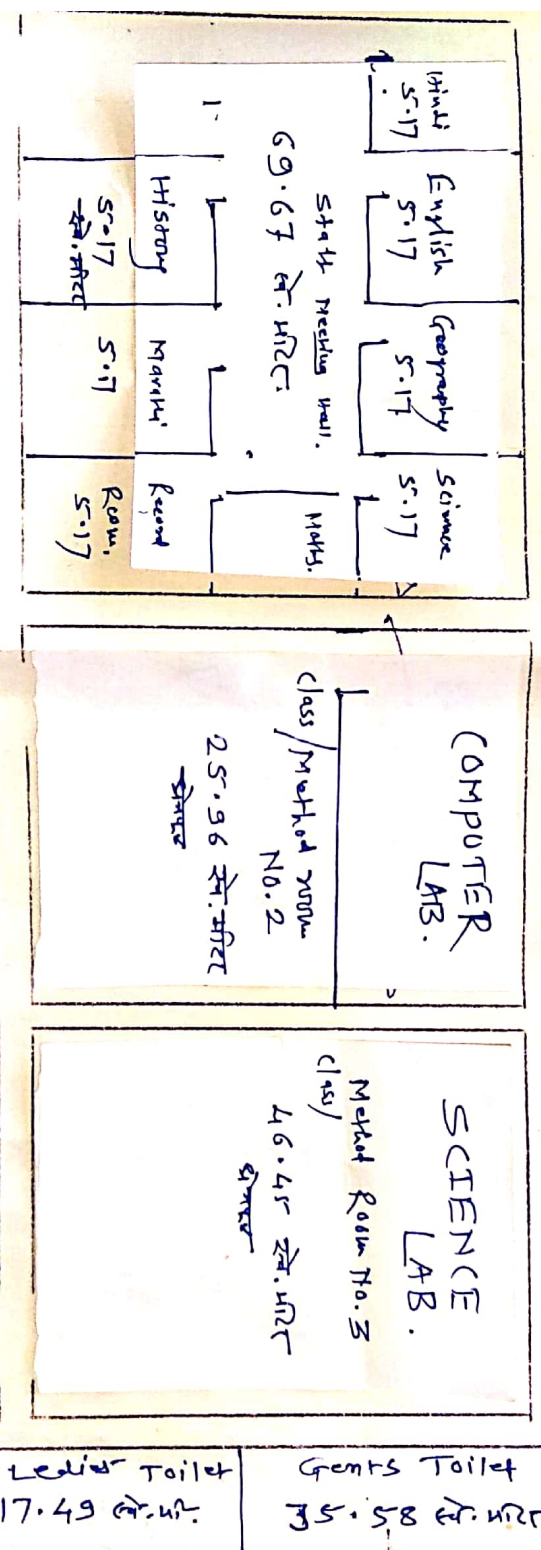 Hindi
5.17
English
5.17
Geography
5.17
Science
5.17
Staff Meeting Hall.
69.67 चौ. मीटर
Maths.
History
5.17
चौ. मीटर
Marathi
5.17
Record
Room.
5.17
COMPUTER
LAB.
Class/Method room
No. 2
25.96 चौ. मीटर
SCIENCE
LAB.
Method Room No. 3
Class/
46.45 चौ. मीटर
Ledies Toilet
17.49 चौ. मी.
Gents Toilet
35.58 चौ. मीटर